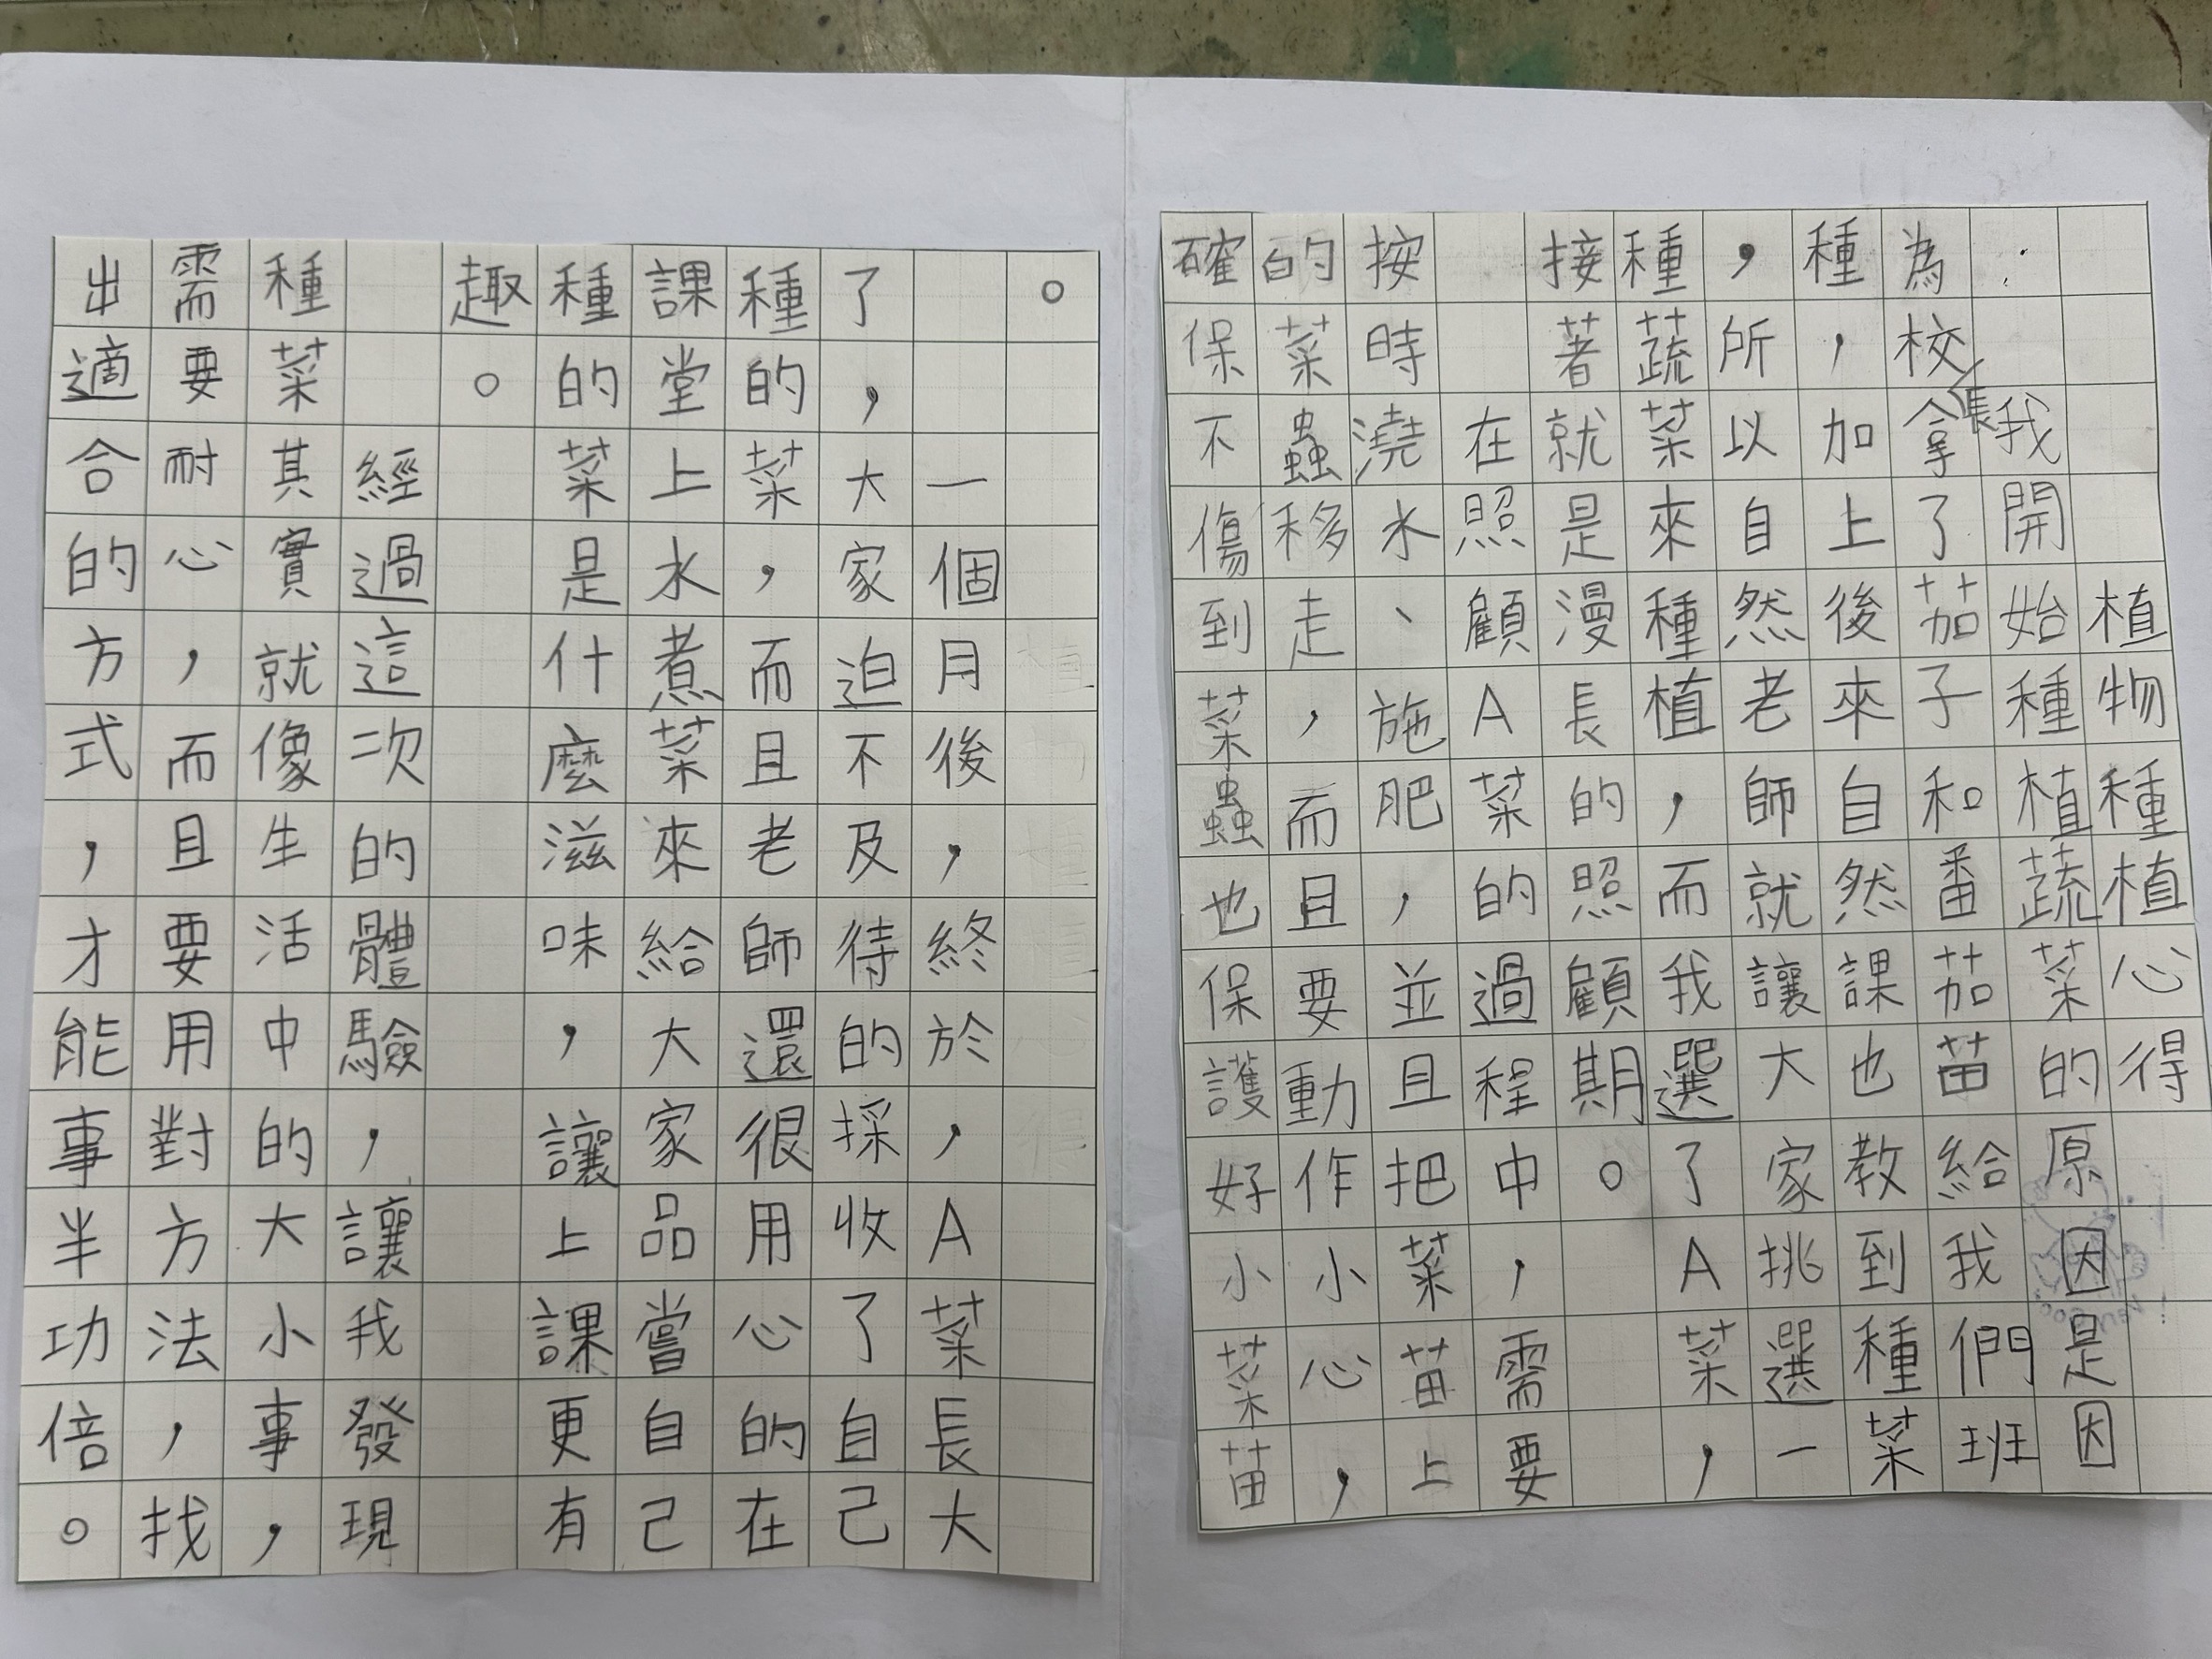 植物種植心得
我開始種植蔬菜的原因是因
為校長拿了茄子和番茄苗給我們班
種，加上後來自然課也教到種菜
，所以自然老師就讓大家挑選一
種蔬菜來種植，而我選了A菜，
接著就是漫長的照顧期。
在照顧A菜的過程中，需要
按時澆水、施肥，並且把菜苗上
的菜蟲移走，而且要動作小心，
確保不傷到菜蟲也保護好小菜苗
。
一個月後，終於，A菜長大
了，大家迫不及待的採收了自己
種的菜，而且老師還很用心的在
課堂上水煮菜來給大家品嘗自己
種的菜是什麼滋味，讓上課更有
趣。
經過這次的體驗，讓我發現
種菜其實就像生活中的大小事，
需要耐心，而且要用對方法，找
出適合的方式，才能事半功倍。